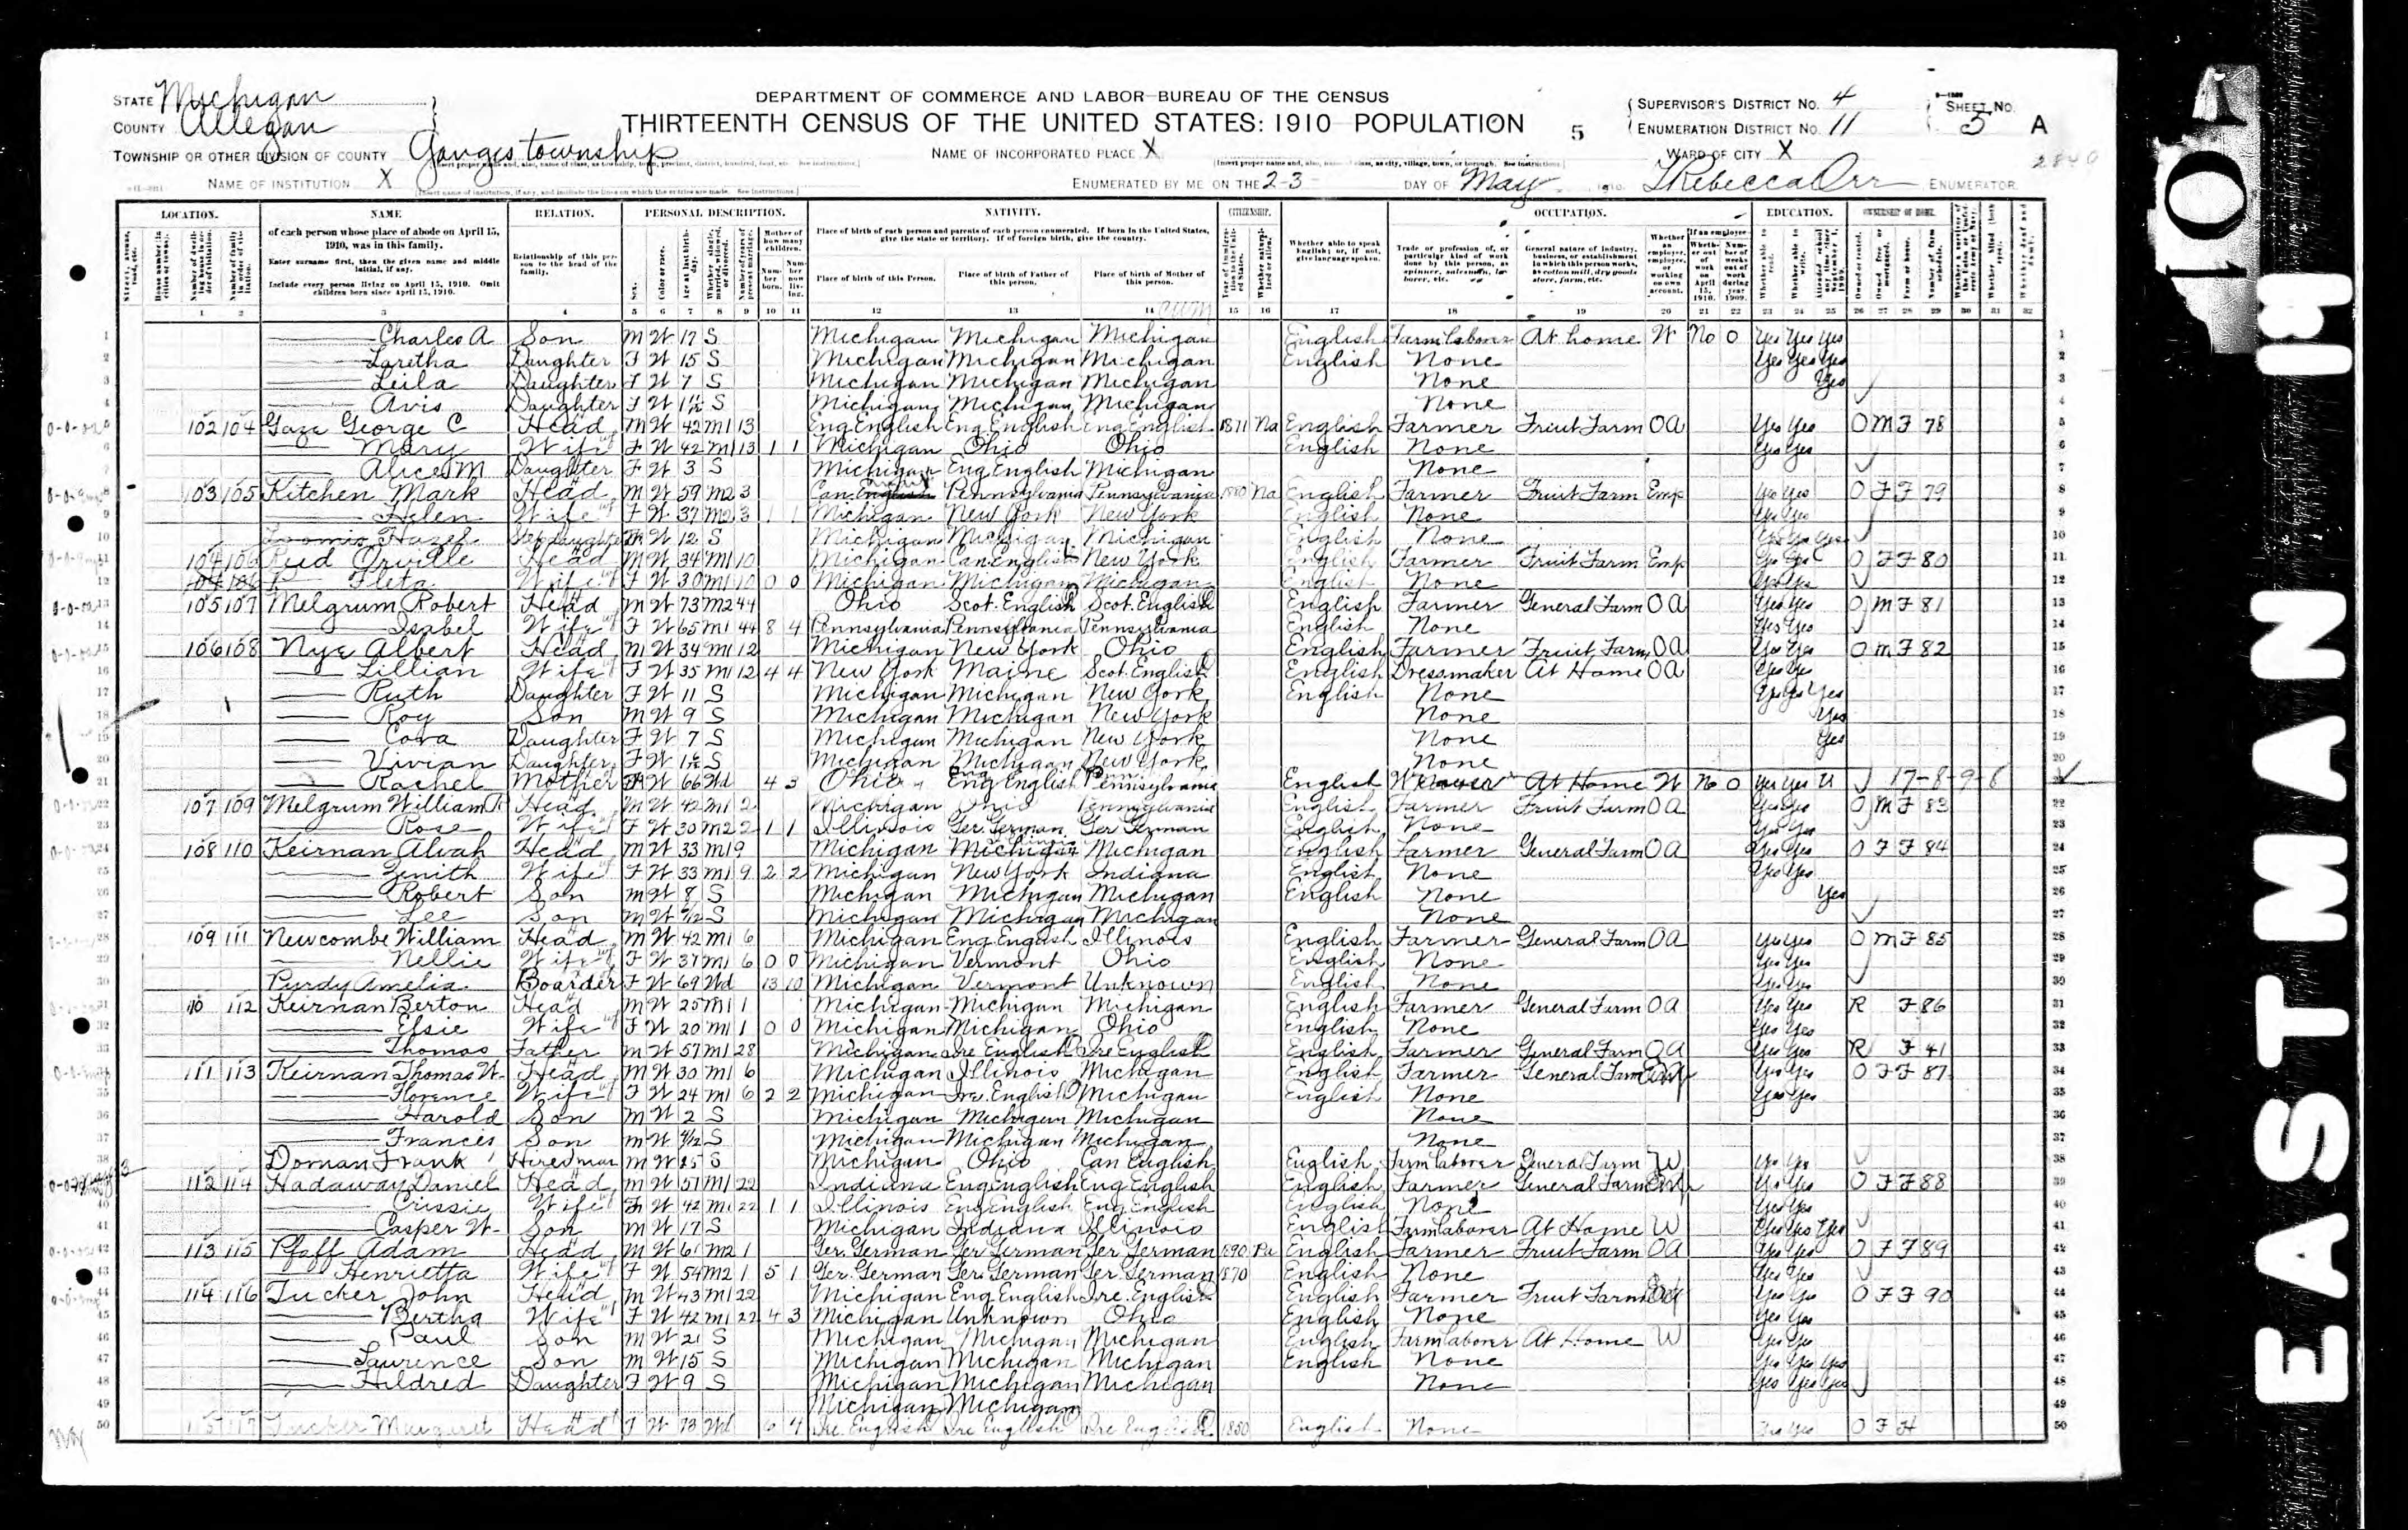 STATE Michigan
COUNTY Allegan
TOWNSHIP OR OTHER DIVISION OF COUNTY Ganges township
NAME OF INSTITUTION X
DEPARTMENT OF COMMERCE AND LABOR-BUREAU OF THE CENSUS
THIRTEENTH CENSUS OF THE UNITED STATES: 1910 POPULATION
NAME OF INCORPORATED PLACE X
ENUMERATED BY ME ON THE 2-3 DAY OF May, 1910. Rebecca Orr, ENUMERATOR.
SUPERVISOR'S DISTRICT NO. 4
ENUMERATION DISTRICT NO. 11
WARD OF CITY X
SHEET NO. 5 A
5
2840
LOCATION. NAME RELATION. PERSONAL DESCRIPTION. NATIVITY. CITIZENSHIP. OCCUPATION. EDUCATION. OWNERSHIP OF HOME.
of each person whose place of abode on April 15, 1910, was in this family.
Enter surname first, then the given name and middle initial, if any.
Include every person living on April 15, 1910. Omit children born since April 15, 1910.
Relationship of this person to the head of the family.
Place of birth of each person and parents of each person enumerated. If born in the United States, give the state or territory. If of foreign birth, give the country.
Place of birth of this Person. Place of birth of Father of this person. Place of birth of Mother of this person.
Whether able to speak English; or, if not, give language spoken.
Trade or profession of, or particular kind of work done by this person, as spinner, salesman, laborer, etc.
General nature of industry, business, or establishment in which this person works, as cotton mill, dry goods store, farm, etc.
1 2 3 4 5 6 7 8 9 10 11 12 13 14 15 16 17 18 19 20 21 22 23 24 25 26 27 28 29 30 31 32
1 Charles A Son M W 17 S Michigan Michigan Michigan English Farm laborer At home W No 0 Yes Yes Yes
2 Laretha Daughter F W 15 S Michigan Michigan Michigan English None Yes Yes Yes
3 Leila Daughter F W 7 S Michigan Michigan Michigan None Yes
4 Avis Daughter F W S Michigan Michigan Michigan None
5 102 104 George C Head M W 42 M1 13 Eng English Eng English Eng English 1871 Na English Farmer Fruit Farm OA Yes Yes O M F 78
6 Mary Wife F W 42 M1 13 1 1 Michigan Ohio Ohio English None Yes Yes
7 Alice M Daughter F W 3 S Michigan Eng English Michigan None
8 103 105 Kitchen Mark Head M W 59 M2 3 Can English Pennsylvania Pennsylvania 1880 Na English Farmer Fruit Farm Emp Yes Yes O F F 79
9 Helen Wife F W 37 M2 3 1 1 Michigan New York New York English None Yes Yes
10 Loomis Hazel Step daughter F W 12 S Michigan Michigan Michigan English None Yes Yes Yes
11 104 106 Reed Orville Head M W 34 M1 10 Michigan Can English New York English Farmer Fruit Farm Emp Yes Yes O F F 80
12 Fleta Wife F W 30 M1 10 0 0 Michigan Michigan Michigan English None Yes Yes
13 105 107 Melgrum Robert Head M W 73 M2 44 Ohio Scot. English Scot. English English Farmer General Farm OA Yes Yes O M F 81
14 Isabel Wife F W 65 M1 44 8 4 Pennsylvania Pennsylvania Pennsylvania English None Yes Yes
15 106 108 Nye Albert Head M W 34 M1 12 Michigan New York Ohio English Farmer Fruit Farm OA Yes Yes O M F 82
16 Lillian Wife F W 35 M1 12 4 4 New York Maine Scot. English English Dressmaker At Home OA Yes Yes
17 Ruth Daughter F W 11 S Michigan Michigan New York English None Yes Yes Yes
18 Roy Son M W 9 S Michigan Michigan New York None Yes
19 Cora Daughter F W 7 S Michigan Michigan New York None Yes
20 Vivian Daughter F W S Michigan Michigan New York None
21 Rachel Mother F W 66 Wd 4 3 Ohio Eng English Pennsylvania English Weaver At Home W No 0 Yes Yes 17-8-9-8
22 107 109 Melgrum William R Head M W 42 M1 2 Michigan Ohio Pennsylvania English Farmer Fruit Farm OA Yes Yes O M F 83
23 Rose Wife F W 30 M2 2 1 1 Illinois Ger. German Ger German English None Yes Yes
24 108 110 Keirnan Alvah Head M W 33 M1 9 Michigan Michigan Michigan English Farmer General Farm OA Yes Yes O F F 84
25 Zenith Wife F W 33 M1 9 2 2 Michigan New York Indiana English None Yes Yes
26 Robert Son M W 8 S Michigan Michigan Michigan English None Yes
27 Lee Son M W S Michigan Michigan Michigan None
28 109 111 Newcombe William Head M W 42 M1 6 Michigan Eng. English Illinois English Farmer General Farm OA Yes Yes O M F 85
29 Nellie Wife F W 37 M1 6 0 0 Michigan Vermont Ohio English None Yes Yes
30 Purdy Amelia Boarder F W 69 Wd 13 10 Michigan Vermont Unknown English None Yes Yes
31 110 112 Keirnan Berton Head M W 25 M1 1 Michigan Michigan Michigan English Farmer General Farm OA Yes Yes R F 86
32 Elsie Wife F W 20 M1 1 0 0 Michigan Michigan Ohio English None Yes Yes
33 Thomas Father M W 57 M1 28 Michigan Ire English Ire English English Farmer General Farm OA Yes Yes R F 41
34 111 113 Keirnan Thomas W. Head M W 30 M1 6 Michigan Illinois Michigan English Farmer General Farm Emp Yes Yes O F F 87
35 Florence Wife F W 24 M1 6 2 2 Michigan Ire. English Michigan English None Yes Yes
36 Harold Son M W 2 S Michigan Michigan Michigan None
37 Frances Son M W S Michigan Michigan Michigan None
38 Dornan Frank Hired man M W 25 S Michigan Ohio Can English English Farm laborer General Farm W Yes Yes
39 112 114 Hadaway Daniel Head M W 51 M1 22 Indiana Eng English Eng English English Farmer General Farm Emp Yes Yes O F F 88
40 Crissie Wife F W 42 M1 22 1 1 Illinois Eng English Eng English English None Yes Yes
41 Casper W. Son M W 17 S Michigan Indiana Illinois English Farm laborer At Home W Yes Yes Yes
42 113 115 Pfaff Adam Head M W 61 M2 1 Ger. German Ger German Ger German 1890 Pa English Farmer Fruit Farm OA Yes Yes O F F 89
43 Henrietta Wife F W 54 M2 1 5 1 Ger. German Ger. German Ger. German 1870 English None Yes Yes
44 114 116 Tucker John Head M W 43 M1 22 Michigan Eng English Ire. English English Farmer Fruit Farm Yes Yes O F F 90
45 Bertha Wife F W 42 M1 22 4 3 Michigan Unknown Ohio English None Yes Yes
46 Paul Son M W 21 S Michigan Michigan Michigan English Farm laborer At Home W Yes Yes
47 Laurence Son M W 15 S Michigan Michigan Michigan English None Yes Yes Yes
48 Hildred Daughter F W 9 S Michigan Michigan Michigan None Yes Yes Yes
49 Michigan Michigan
50 115 117 Tucker Margaret Head F W 73 Wd 6 4 Ire. English Ire English Ire English 1850 English None Yes Yes O F H
101
EASTMAN